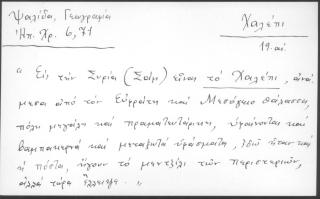 Ψαλίδα, Γεωγραφία
Ἠπ. Χρ. 6, 71
Χαλέπι
19. αἰ.
« Εἰς τὴν Συρίαν (Σάμ) εἶναι τὸ Χαλέπι, ἀνά
μεσα ἀπὸ τὸν Εὐφράτη καὶ Μεσόγειο θάλασσα,
πόλη μεγάλη καὶ πραματευτάρικη, ὑφαίνονται καὶ
βαμπακερὰ καὶ μεταξωτὰ ὑφάσματα, ἐδῶ ἦταν καὶ
ἡ πόστα, ἤγουν τὸ μεντζίλι τῶν περιστεριῶν,
ἀλλὰ τώρα ἔλλειψε. »